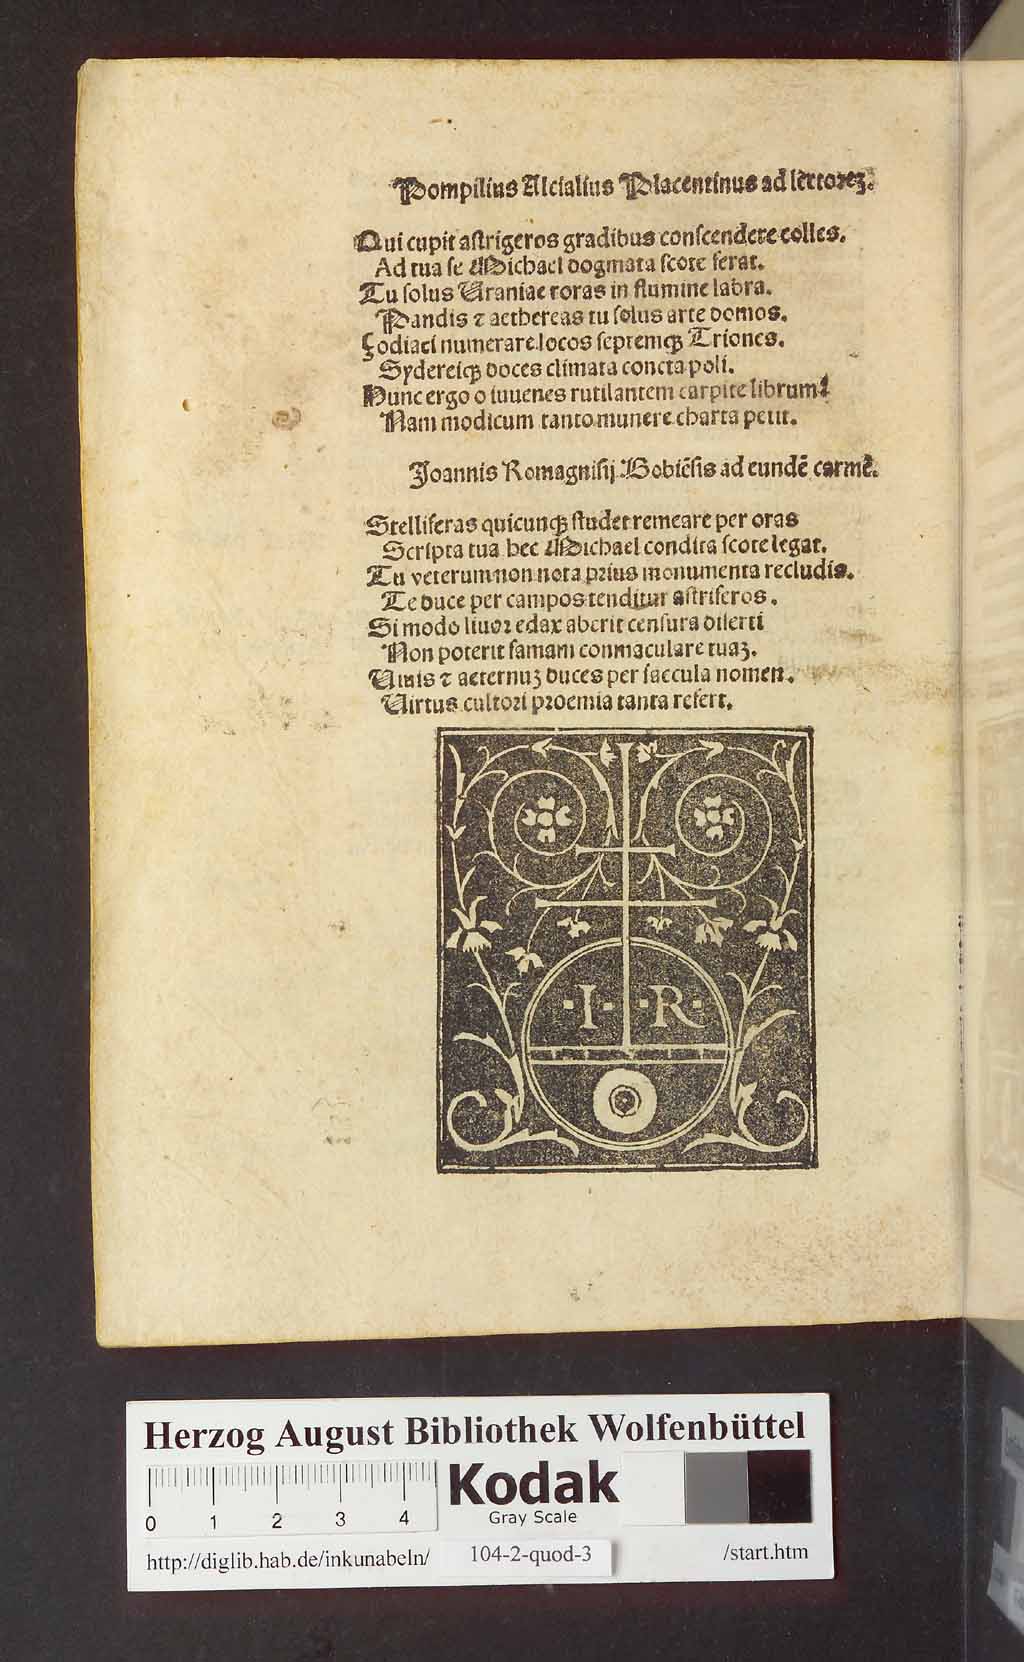 Pompilius Alcialius Placentinus ad lectorez.
Qui cupit astrigeros gradibus conscendere colles.
Ad tua se Michael dogmata scote ferat.
Tu solus Uraniae roras in flumine labra.
Pandis ⁊ aethereas tu solus arte domos.
Çodiaci numerare locos septemqꝫ Triones.
Sydereiqꝫ doces climata concta poli.
Nunc ergo o iuuenes rutilantem carpite librum:
Nam modicum tanto munere charta petit.
Joannis Romagnisij Bobiēsis ad eundē carmē.
Stelliferas quicunqꝫ studet remeare per oras
Scripta tua hec Michael condita scote legat.
Tu veterum non nota prius monumenta recludis.
Te duce per campos tenditur astriferos.
Si modo liuor edax aberit censura diserti
Non poterit famam conmaculare tuaꝫ.
Uiuis ⁊ aeternuꝫ duces per saecula nomen.
Uirtus cultori proemia tanta refert.
·I· ·R·
Herzog August Bibliothek Wolfenbüttel
Kodak
Gray Scale
0 1 2 3 4
http://diglib.hab.de/inkunabeln/ 104-2-quod-3 /start.htm